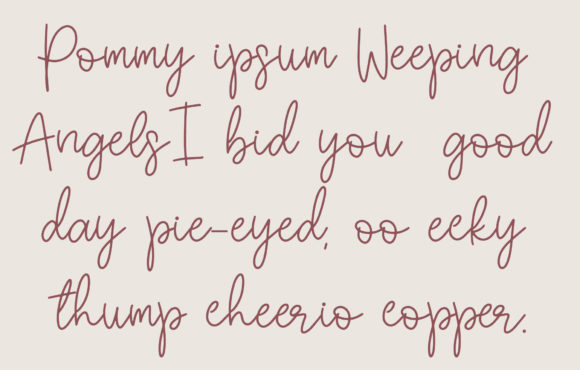 Pommy ipsum Weeping
Angels I bid you good
day pie-eyed, oo eeky
thump cheerio copper.